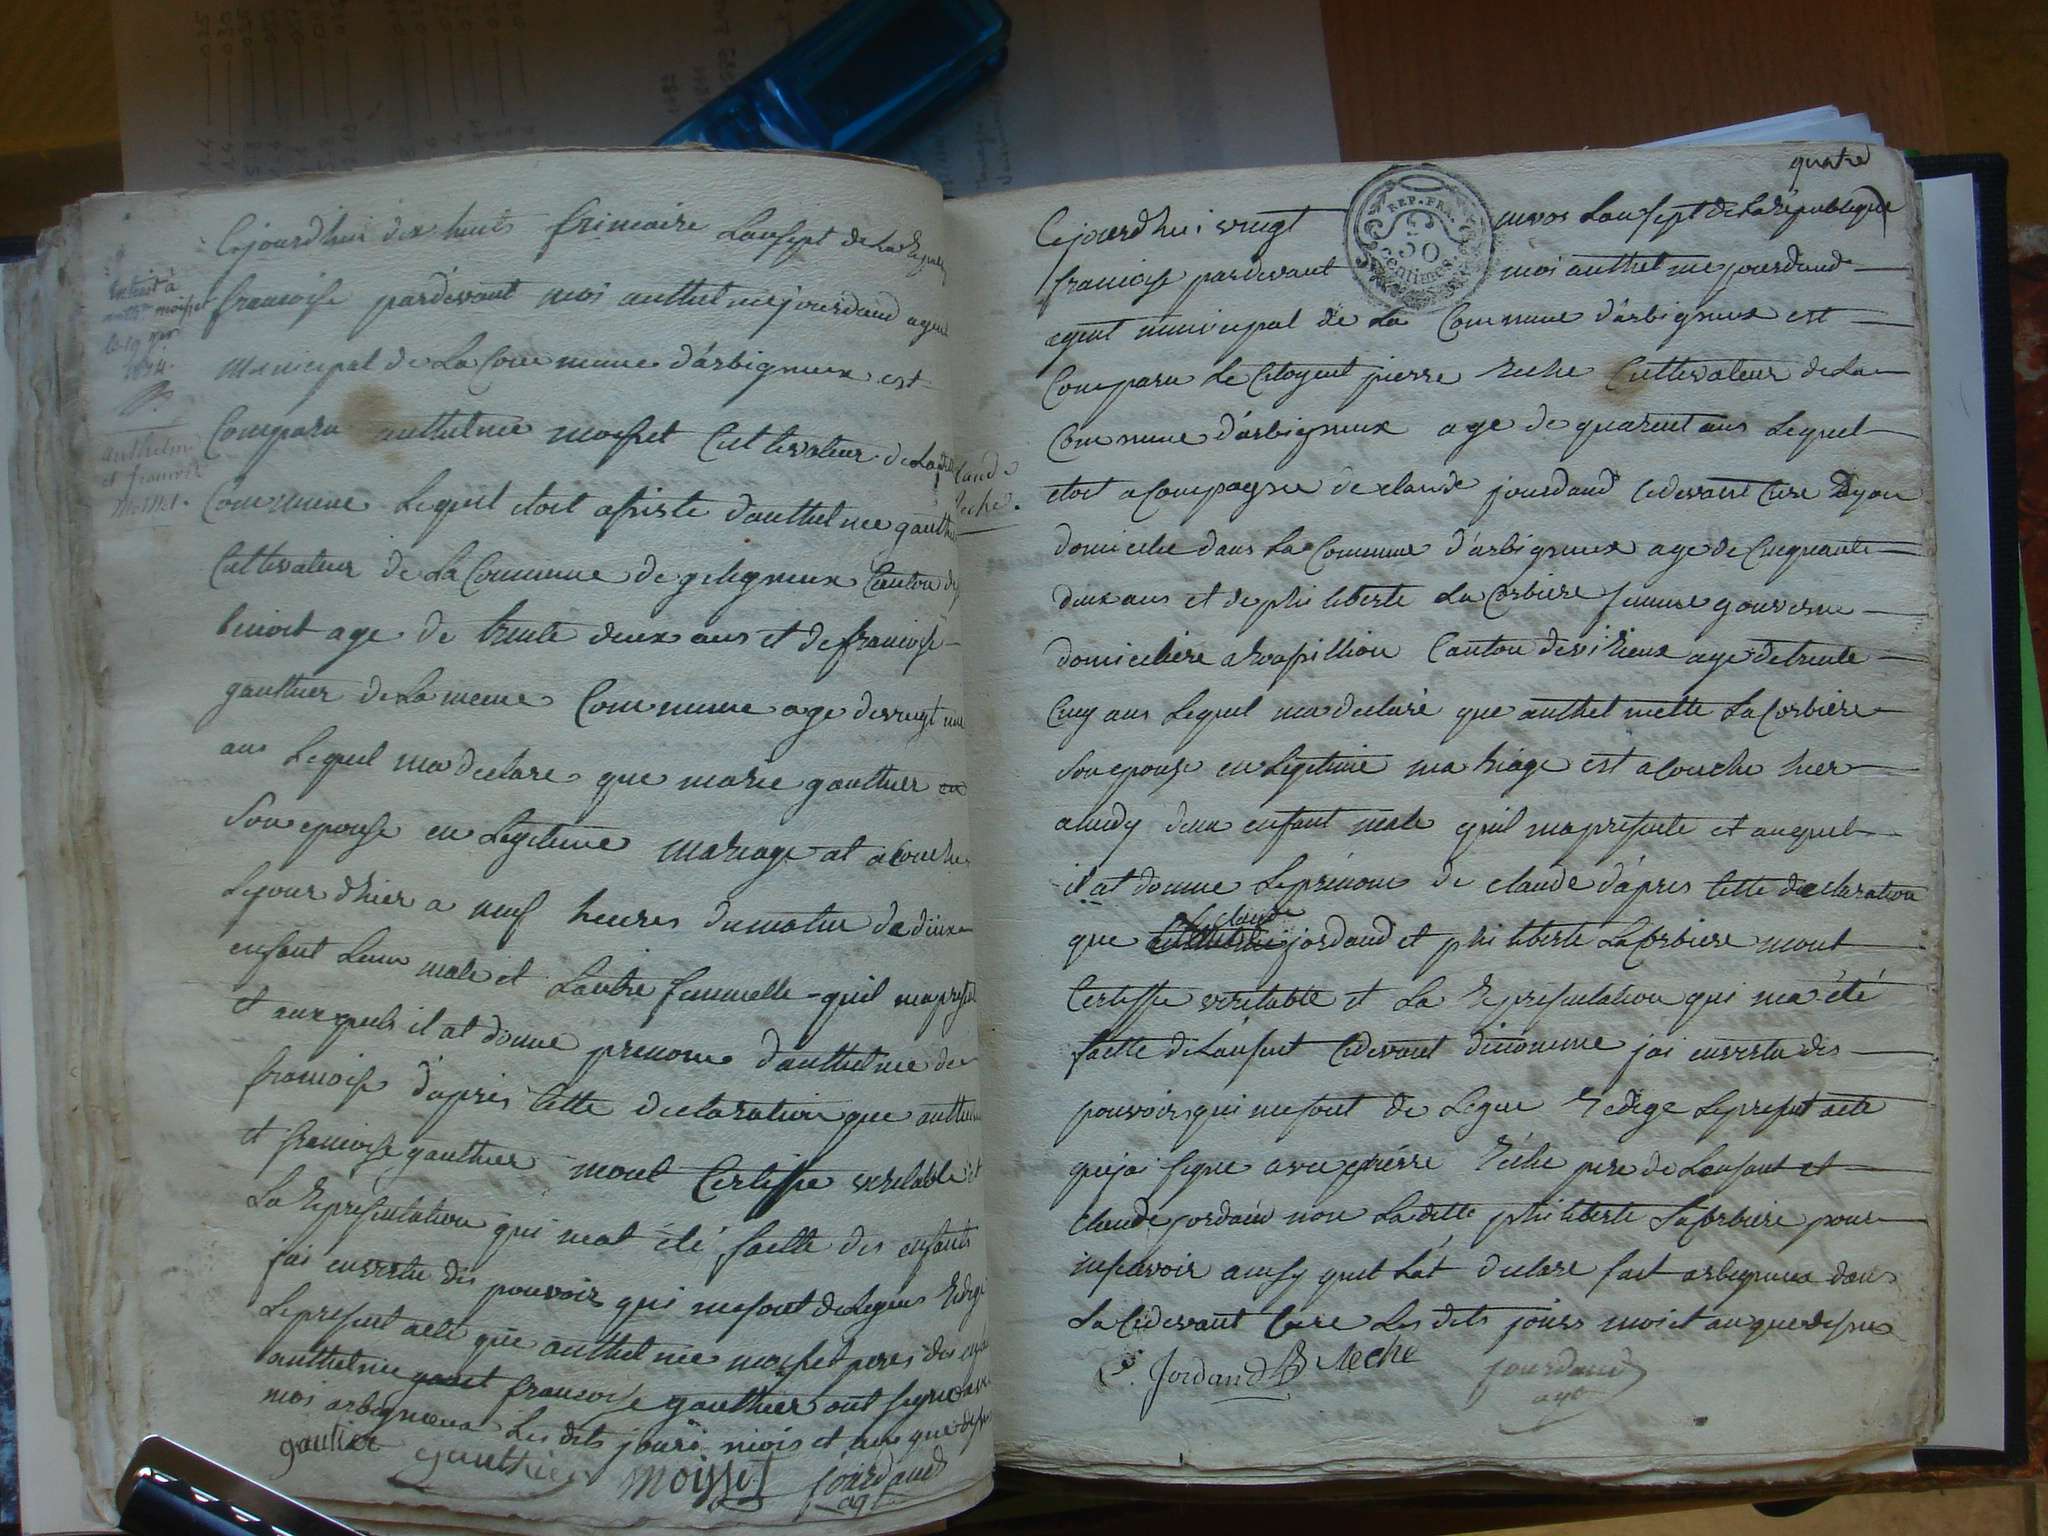 Cejourdhui dix huit frimaire Lansept de La Repub
francoise pardevant moi anthelme jourdand agent
Municipal de La Commune d'arbigneux est
Comparu anthelme moisset Cultivateur de La
Commune Lequel etoit assiste d'anthelme gauthier
Cultivateur de La Commune de gelignieux Canton de
benoit age de trente deux ans et de francoise
gauthier de La meme Commune age de vingt un
ans Lequel ma declare que marie gauthier
Son epouse en Legitime mariage at acouche
Lejour dhier a neuf heures du matin de deux
enfant Lun male et Lautre femmelle - quil ma presente
et auxquels il at donne prenome d'anthelme de
francoise d'apres Cette declaration que anthelme
et francoise gauthier mont Certiffie veritable et
La Representation qui mat été faitte des enfants
jai envertu des pouvoirs qui me sont delegues Redige
Le present acte que anthelme moisset peres des enfants
anthelme francoise gauthier ont signe avec
moi arbigneux Les dits jours mois et an que dessus
gautier gauthier moisset jourdand
agt
Extrait à
anthme moisset
le 19
1814.
Anthelme
et francoise
Moisset.
quatre
REP. FRA.
50
centimes.
Cejourdhui vingt nivos Lansept de La Republique
francoise pardevant moi anthelme jourdand
agent municipal de La Commune d'arbigneux est
Comparu Le Citoyent pierre reche Cultivateur de La
Commune d'arbigneux age de quarent ans Lequel
etoit acompagne de claude jourdand cidevant Cure
domicilie dans La Commune d'arbigneux age de Cinquante
deux ans et de philiberte La Corbiere femme
domiciliere a Rossillion Canton de virieux age de trente
Cinq ans Lequel ma declaré que anthelmette La Corbiere
Son epouse en Legitime mariage est acouche hier
a midy dun enfant male quil ma presente et auquel
il at donne Le prénom de claude d'apres Cette declaration
que claude jordand et philiberte La Corbiere mont
Certiffie veritable et La Representation qui ma été
faitte de Lenfent Cidevant dénomme jai envertu des
pouvoirs qui me sont de Legue Redige Le present acte
que jai signe avec pierre réche pere de Lenfant et
claude jordand non La ditte philiberte La Corbiere pour
ne savoir ainsy quel Lat declare fait arbigneux dans
La Cidevant Cure Les dits jours mois et an que dessus
C. Jordand P Reche jourdand
agt
Claude
Reche.